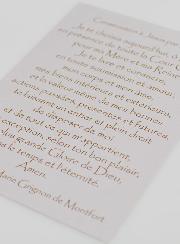 Consécration à Jésus par
Je te choisis aujourd'hui, ô
en présence de toute la Cour
pour ma Mère et ma Reine
Je te livre et consacre,
mon corps et mon âme,
mes biens intérieurs et extérieurs,
et la valeur même de mes bonnes
actions passées, présentes et futures,
te laissant un entier et plein droit
de disposer de moi
et de tout ce qui m'appartient,
sans exception, selon ton bon plaisir,
à la plus grande Gloire de Dieu,
dans le temps et l'éternité.
Amen.
Grignion de Montfort